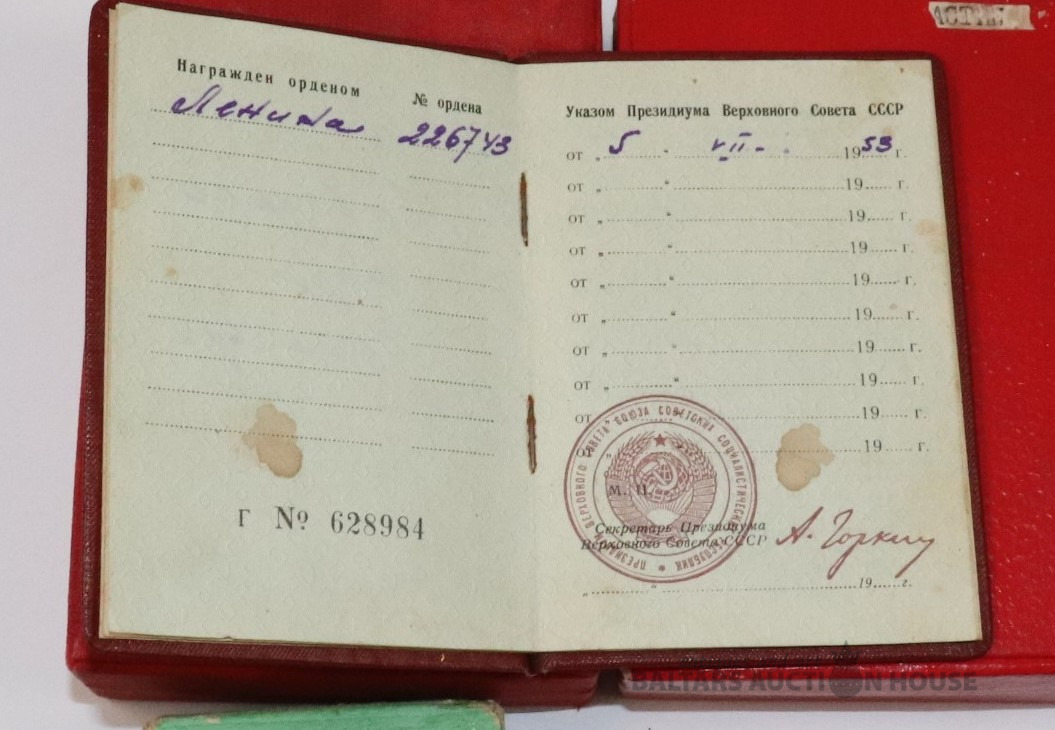 Награжден орденом
№ ордена
Ленина
226743
г № 628984
Указом Президиума Верховного Совета СССР
от „ 5 “ VII 1953 г.
от „ “ 19 г.
от „ “ 19 г.
от „ “ 19 г.
от „ “ 19 г.
от „ “ 19 г.
от „ “ 19 г.
от „ “ 19 г.
от „ “ 19 г.
19 г.
ПРЕЗИДИУМ ВЕРХОВНОГО СОВЕТА СОЮЗА СОВЕТСКИХ СОЦИАЛИСТИЧЕСКИХ РЕСПУБЛИК
М. П.
Секретарь Президиума
Верховного Совета СССР
А. Горкин
„ “ 19 г.
BALTARS AUCTION HOUSE